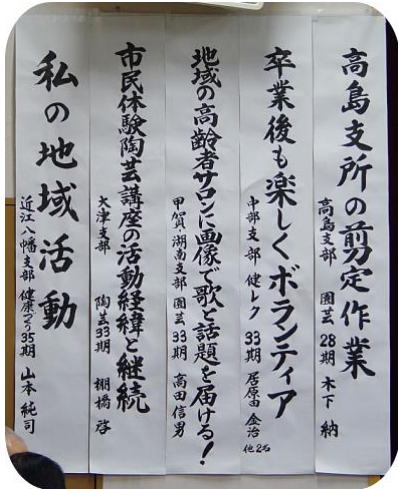 高島支所の剪定作業
高島支部 園芸28期 木下 納
卒業後も楽しくボランティア
中部支部 健レク 33期 居原田 金治 他2名
地域の高齢者サロンに画像で歌と話題を届ける!
甲賀・湖南支部 園芸33期 高田信男
市民体験陶芸講座の活動経緯と継続
大津支部 陶芸33期 棚橋 啓
私の地域活動
近江八幡支部 健康づくり35期 山本純司